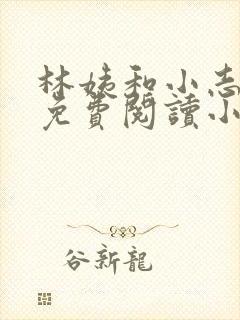 林姨和小志
免費閱讀小
谷新龍